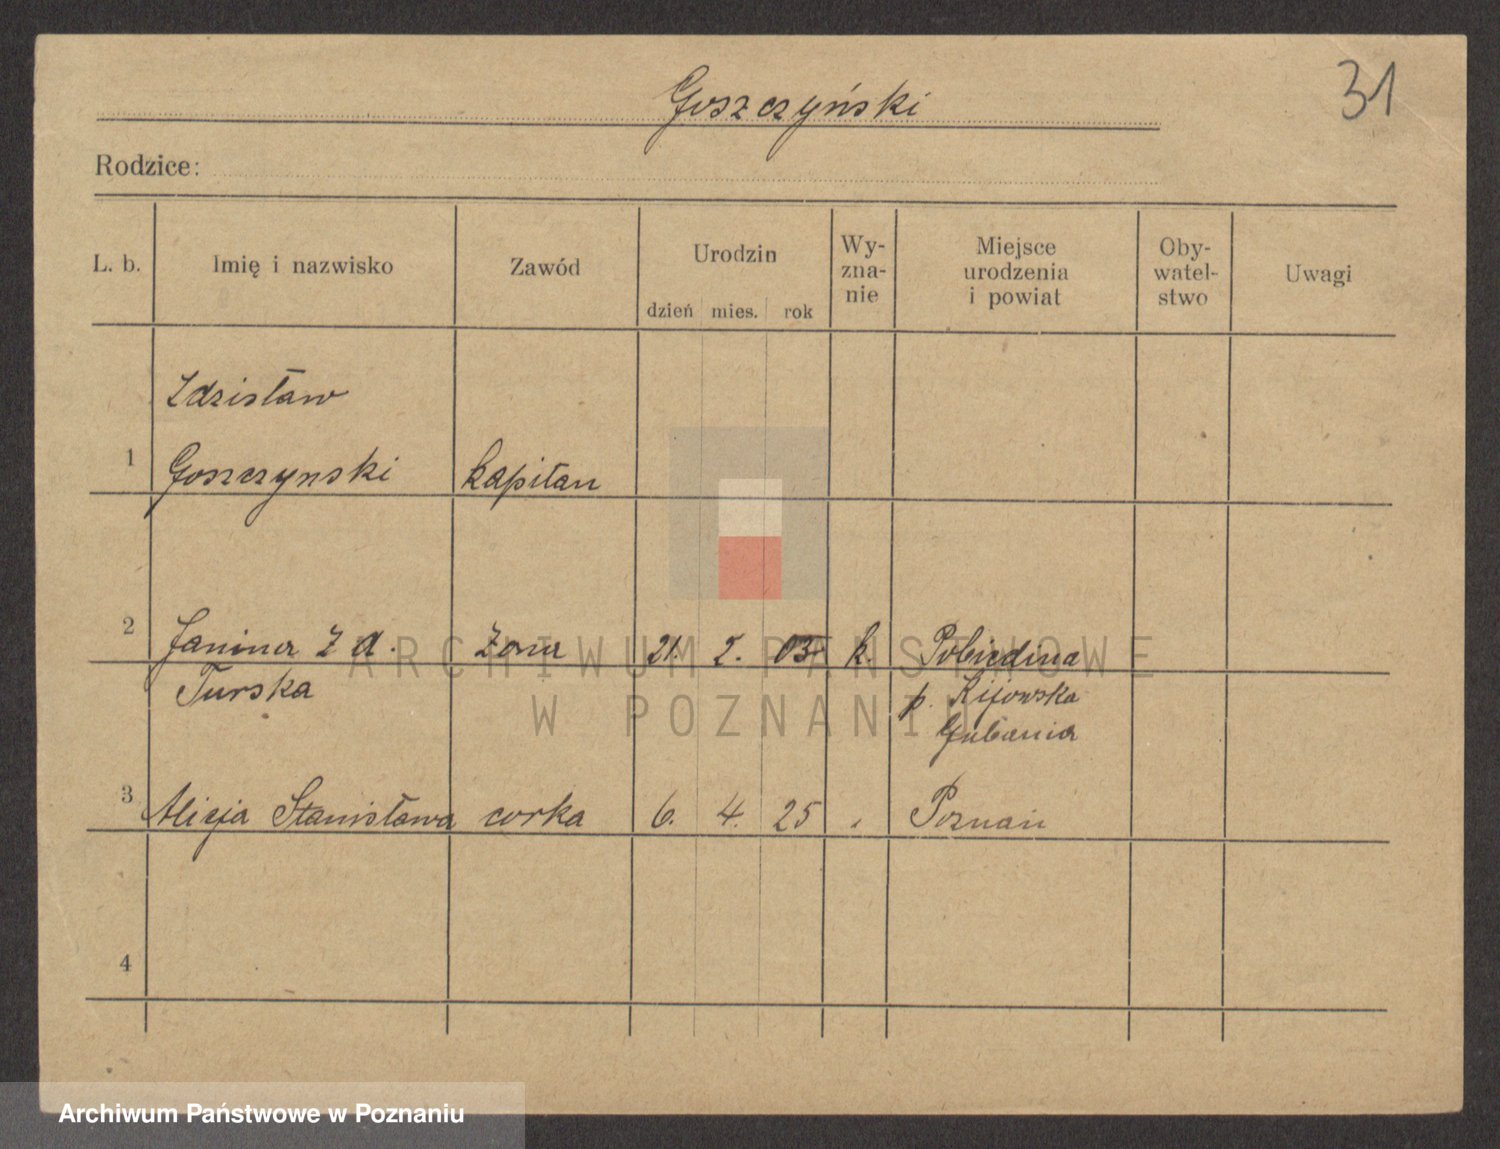 Goszczyński
31
Rodzice:
L. b. Imię i nazwisko Zawód Urodzin dzień mies. rok Wy-zna-nie Miejsce urodzenia i powiat Oby-watel-stwo Uwagi
Zdzisław
1 Goszczynski kapitan
2 Janina z d. żona 21. 2. 03 k. Pobiedina
Turska p. Kijowska
Gubania
3 Alicja Stanisława corka 6. 4. 25 Poznań
4
ARCHIWUM PAŃSTWOWE
W POZNANIU
Archiwum Państwowe w Poznaniu